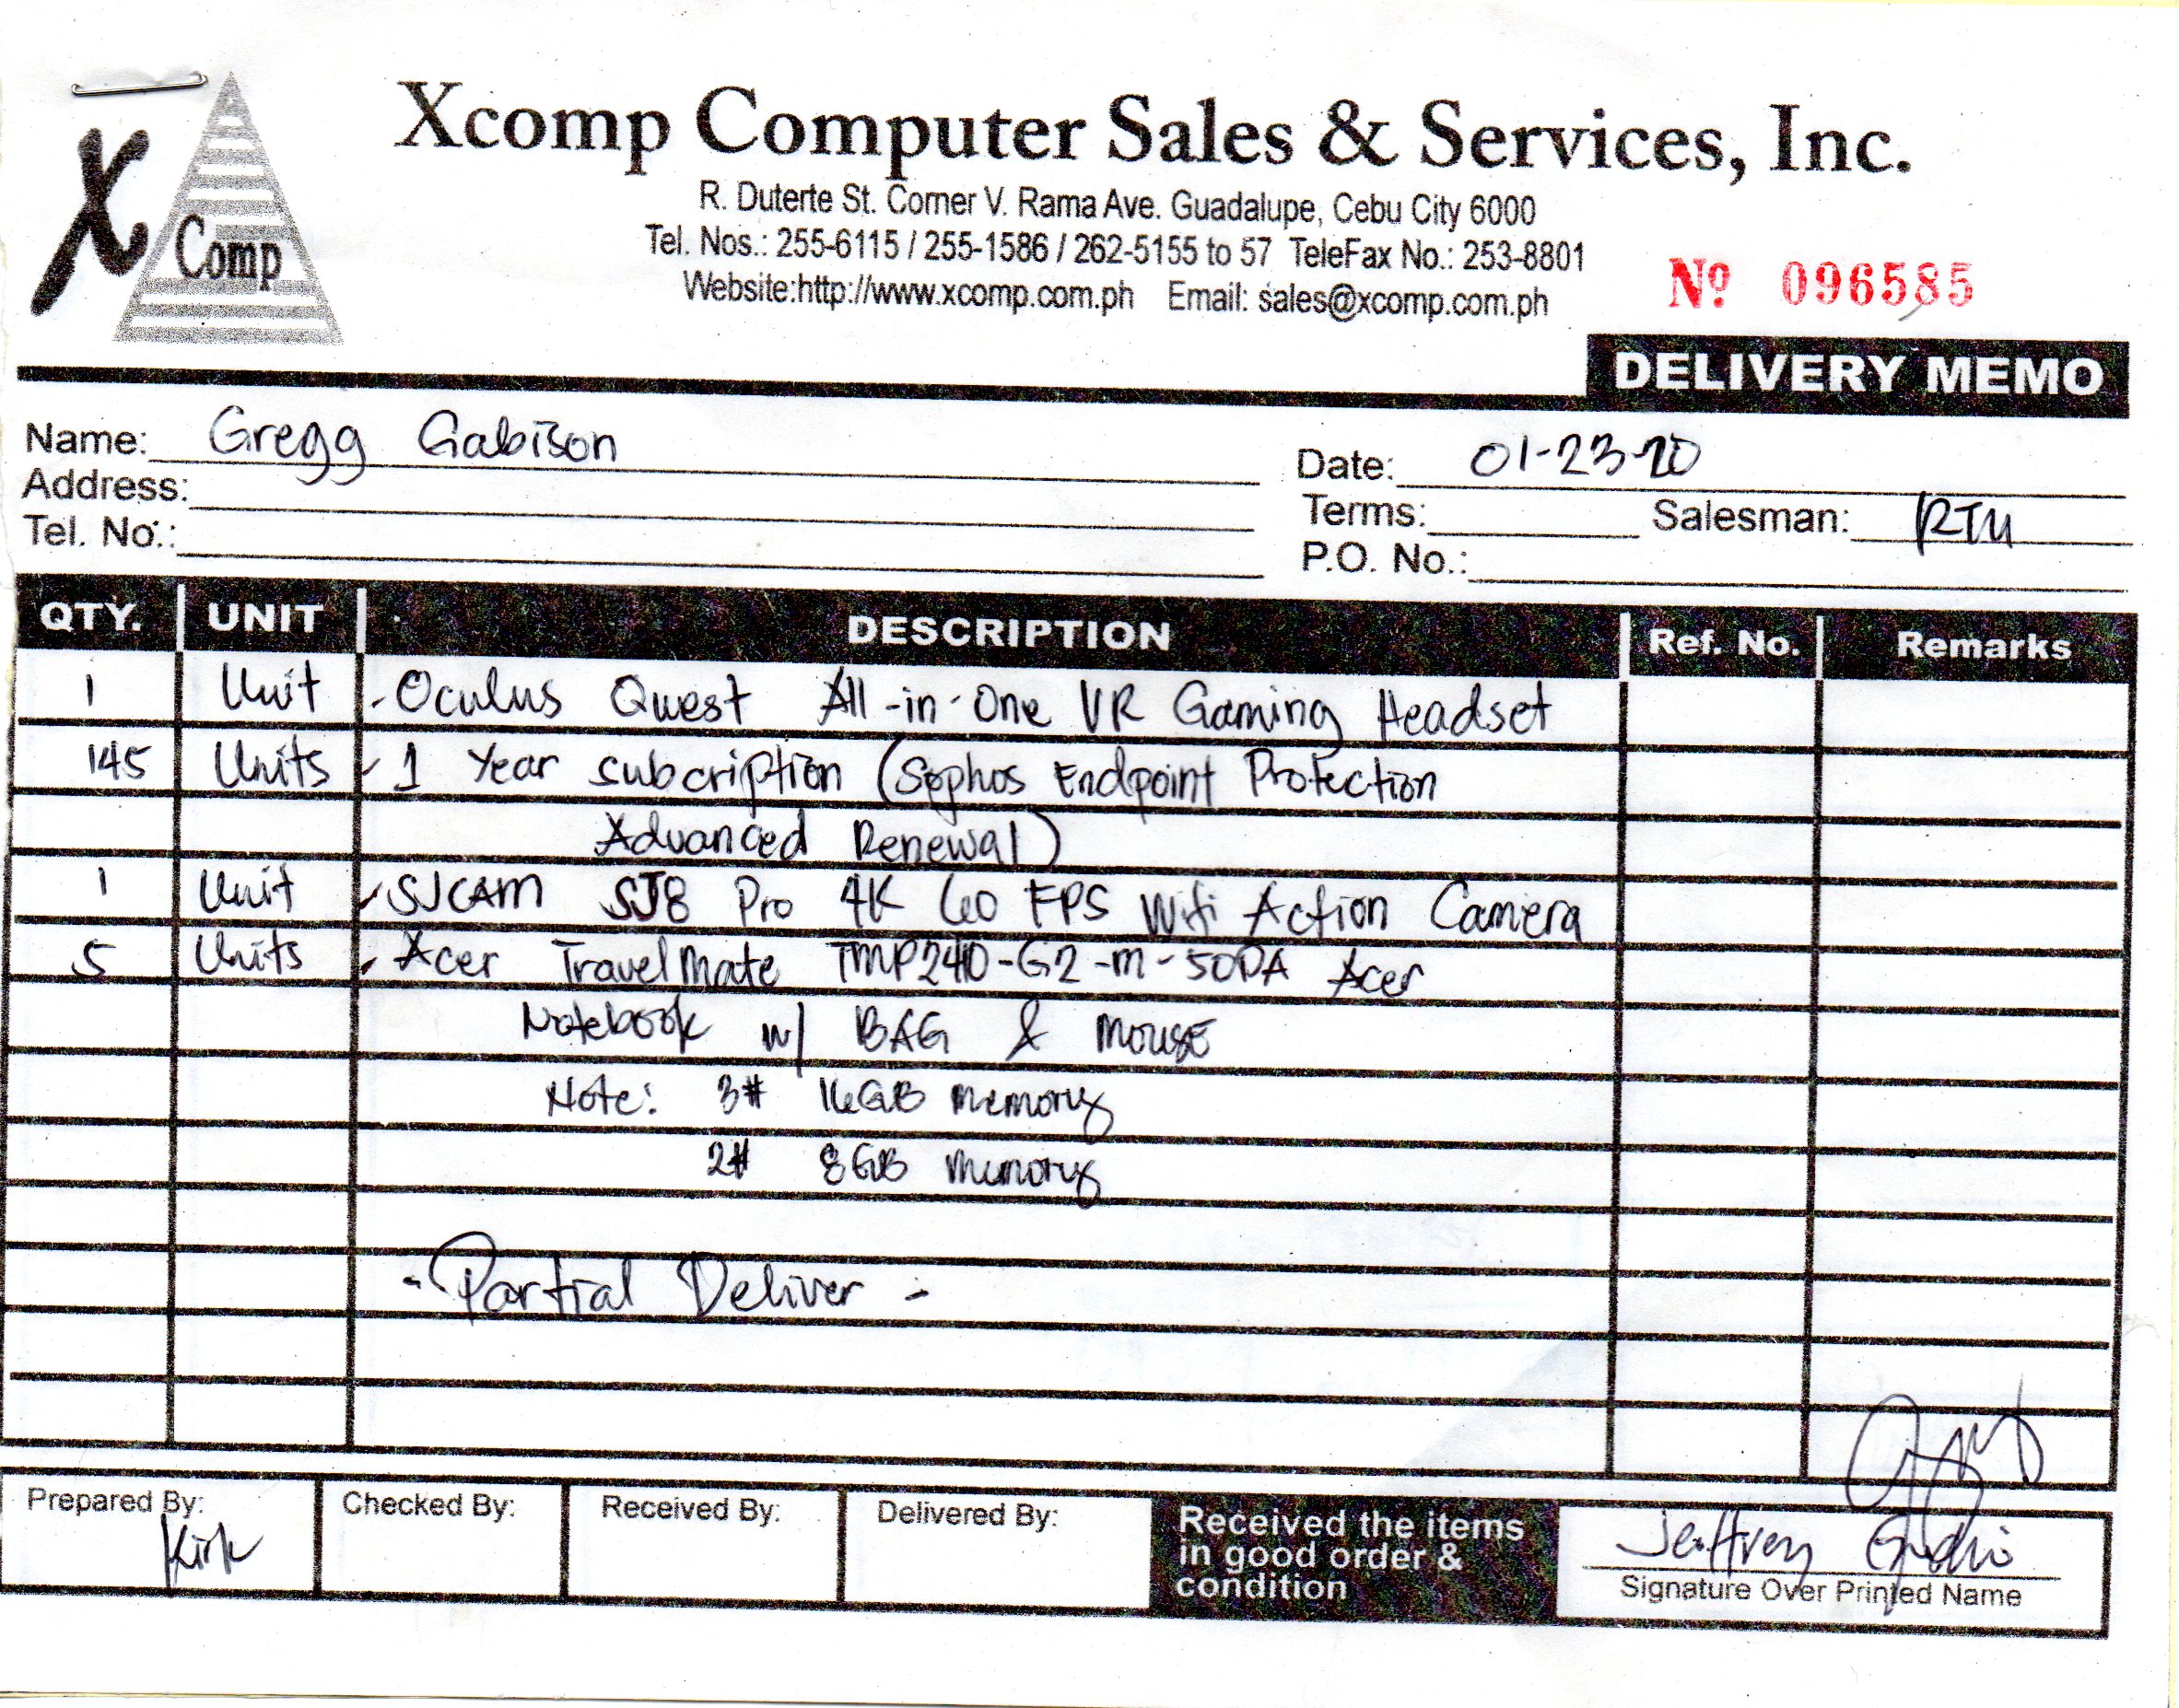 X Comp
Xcomp Computer Sales & Services, Inc.
R. Duterte St. Corner V. Rama Ave. Guadalupe, Cebu City 6000
Tel. Nos.: 255-6115 / 255-1586 / 262-5155 to 57 TeleFax No.: 253-8801
Website:http://www.xcomp.com.ph Email: sales@xcomp.com.ph
Nº 096585
DELIVERY MEMO
Name: Gregg Gabison
Date: 01-23-20
Address:
Terms: Salesman: RTM
Tel. No.:
P.O. No.:
QTY. UNIT DESCRIPTION Ref. No. Remarks
1 Unit - Oculus Quest All-in-One VR Gaming Headset
145 Units - 1 Year subcription (Sophos Endpoint Protection
Advanced Renewal)
1 Unit - SJCAM SJ8 Pro 4K 60 FPS Wifi Action Camera
5 Units - Acer TravelMate TMP2410-G2-M-50DA Acer
Notebook w/ BAG & MOUSE
Note: 3# 16GB Memory
2# 8GB Memory
- Partial Deliver -
Prepared By: Kirk
Checked By:
Received By:
Delivered By:
Received the items
in good order &
condition
Jeffrey
Signature Over Printed Name